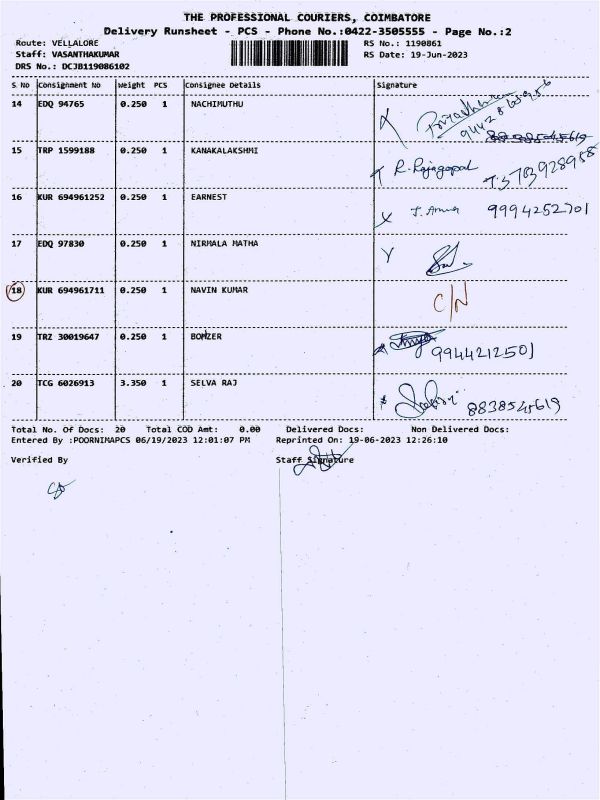 THE PROFESSIONAL COURIERS, COIMBATORE
Delivery Runsheet - PCS - Phone No.:0422-3505555 - Page No.:2
Route: VELLALORE RS No.: 1190861
Staff: VASANTHAKUMAR RS Date: 19-Jun-2023
DRS No.: DCJB119086102
S No Consignment No Weight PCS Consignee Details Signature
14 EDQ 94765 0.250 1 NACHIMUTHU
15 TRP 1599188 0.250 1 KANAKALAKSHMI R. Rajagopal
16 KUR 694961252 0.250 1 EARNEST 9994252701
17 EDQ 97830 0.250 1 NIRMALA MATHA
18 KUR 694961711 0.250 1 NAVIN KUMAR C/N
19 TRZ 30019647 0.250 1 9944212501
20 TCG 6026913 3.350 1 SELVA RAJ 8838545619
Total No. Of Docs: 20 Total COD Amt: 0.00 Delivered Docs: Non Delivered Docs:
Entered By :POORNIMAPCS 06/19/2023 12:01:07 PM Reprinted On: 19-06-2023 12:26:10
Verified By Staff Signature